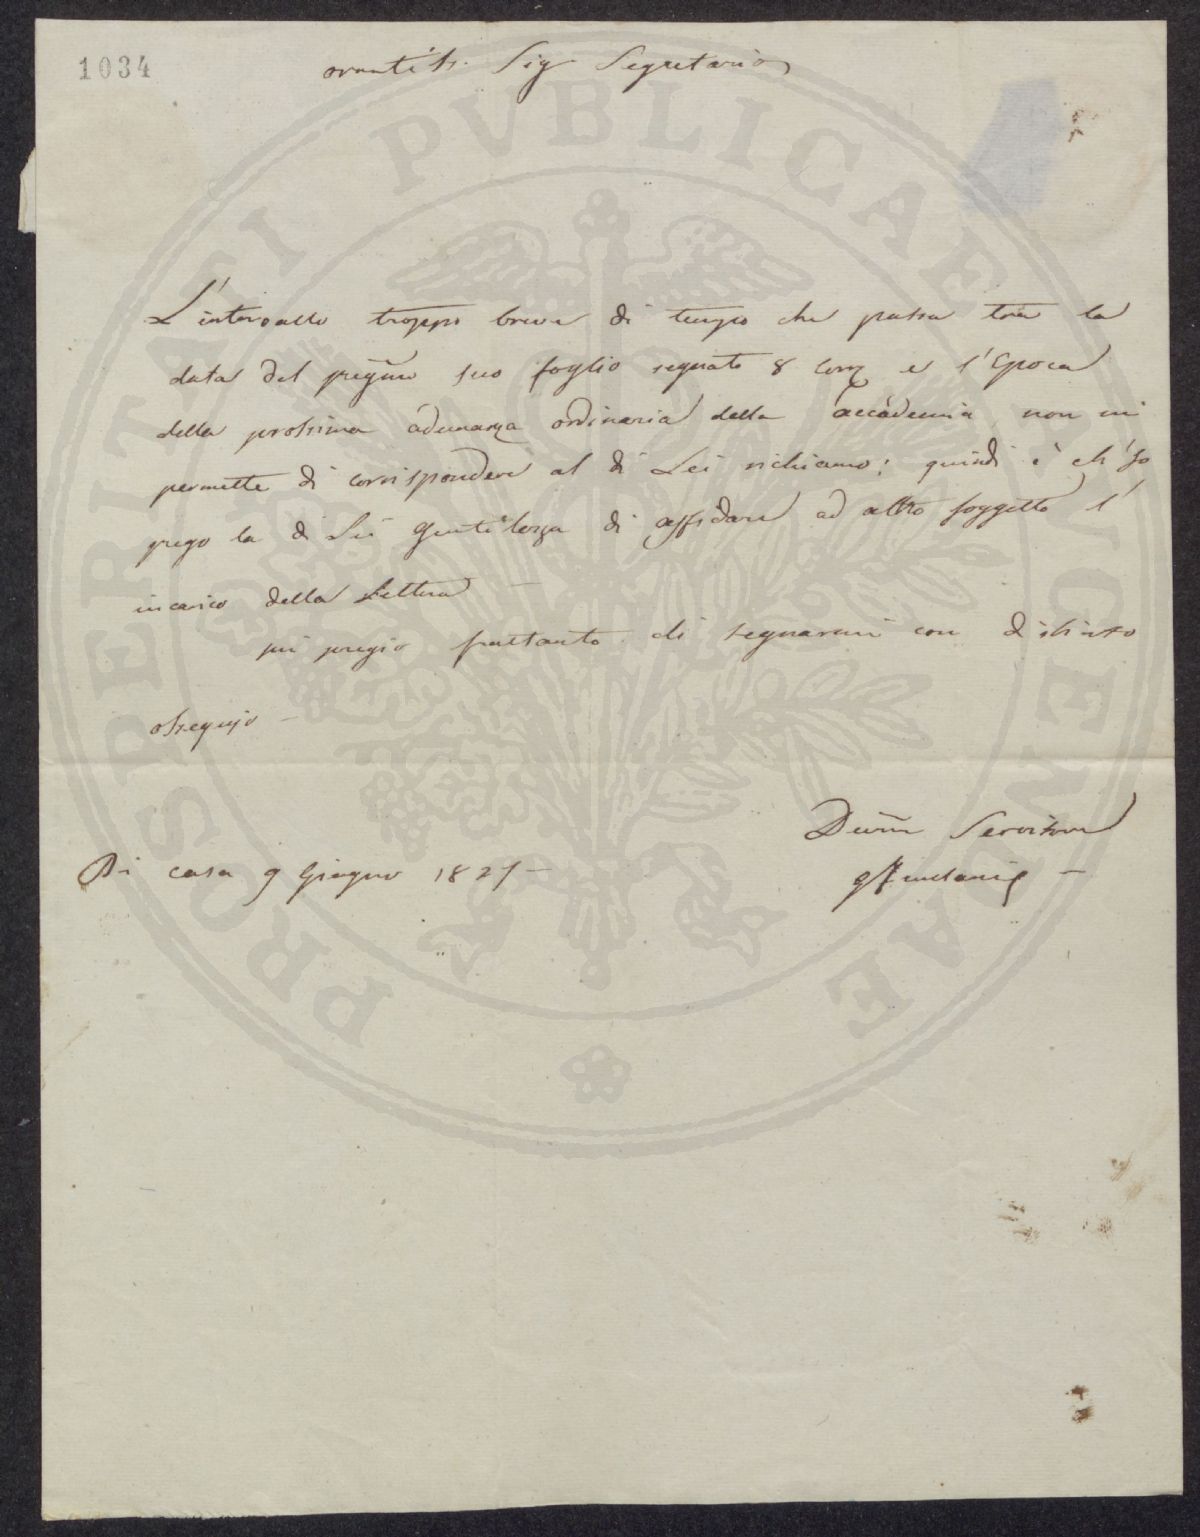 1034
Sig. Segretario
L'intervallo troppo breve di tempo che passa tra la
data del preg.mo suo foglio segnato 8 corr. e l'Epoca
della prossima adunanza ordinaria della accademia non mi
permette di corrispondere al di Lei richiamo; quindi è ch'Io
prego la di Lei gentilezza di affidare ad altro soggetto l'
incarico della Lettura —
mi pregio frattanto di segnarmi con distinto
ossequio —
Devmo Servitore
Di casa 9 Giugno 1827 —
PROSPERITATI PVBLICAE AVGENDAE